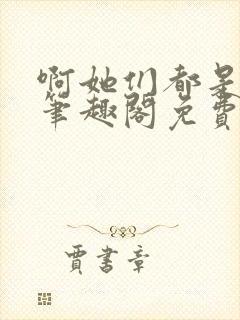 啊她们都是
笔趣阁免费
贾书章